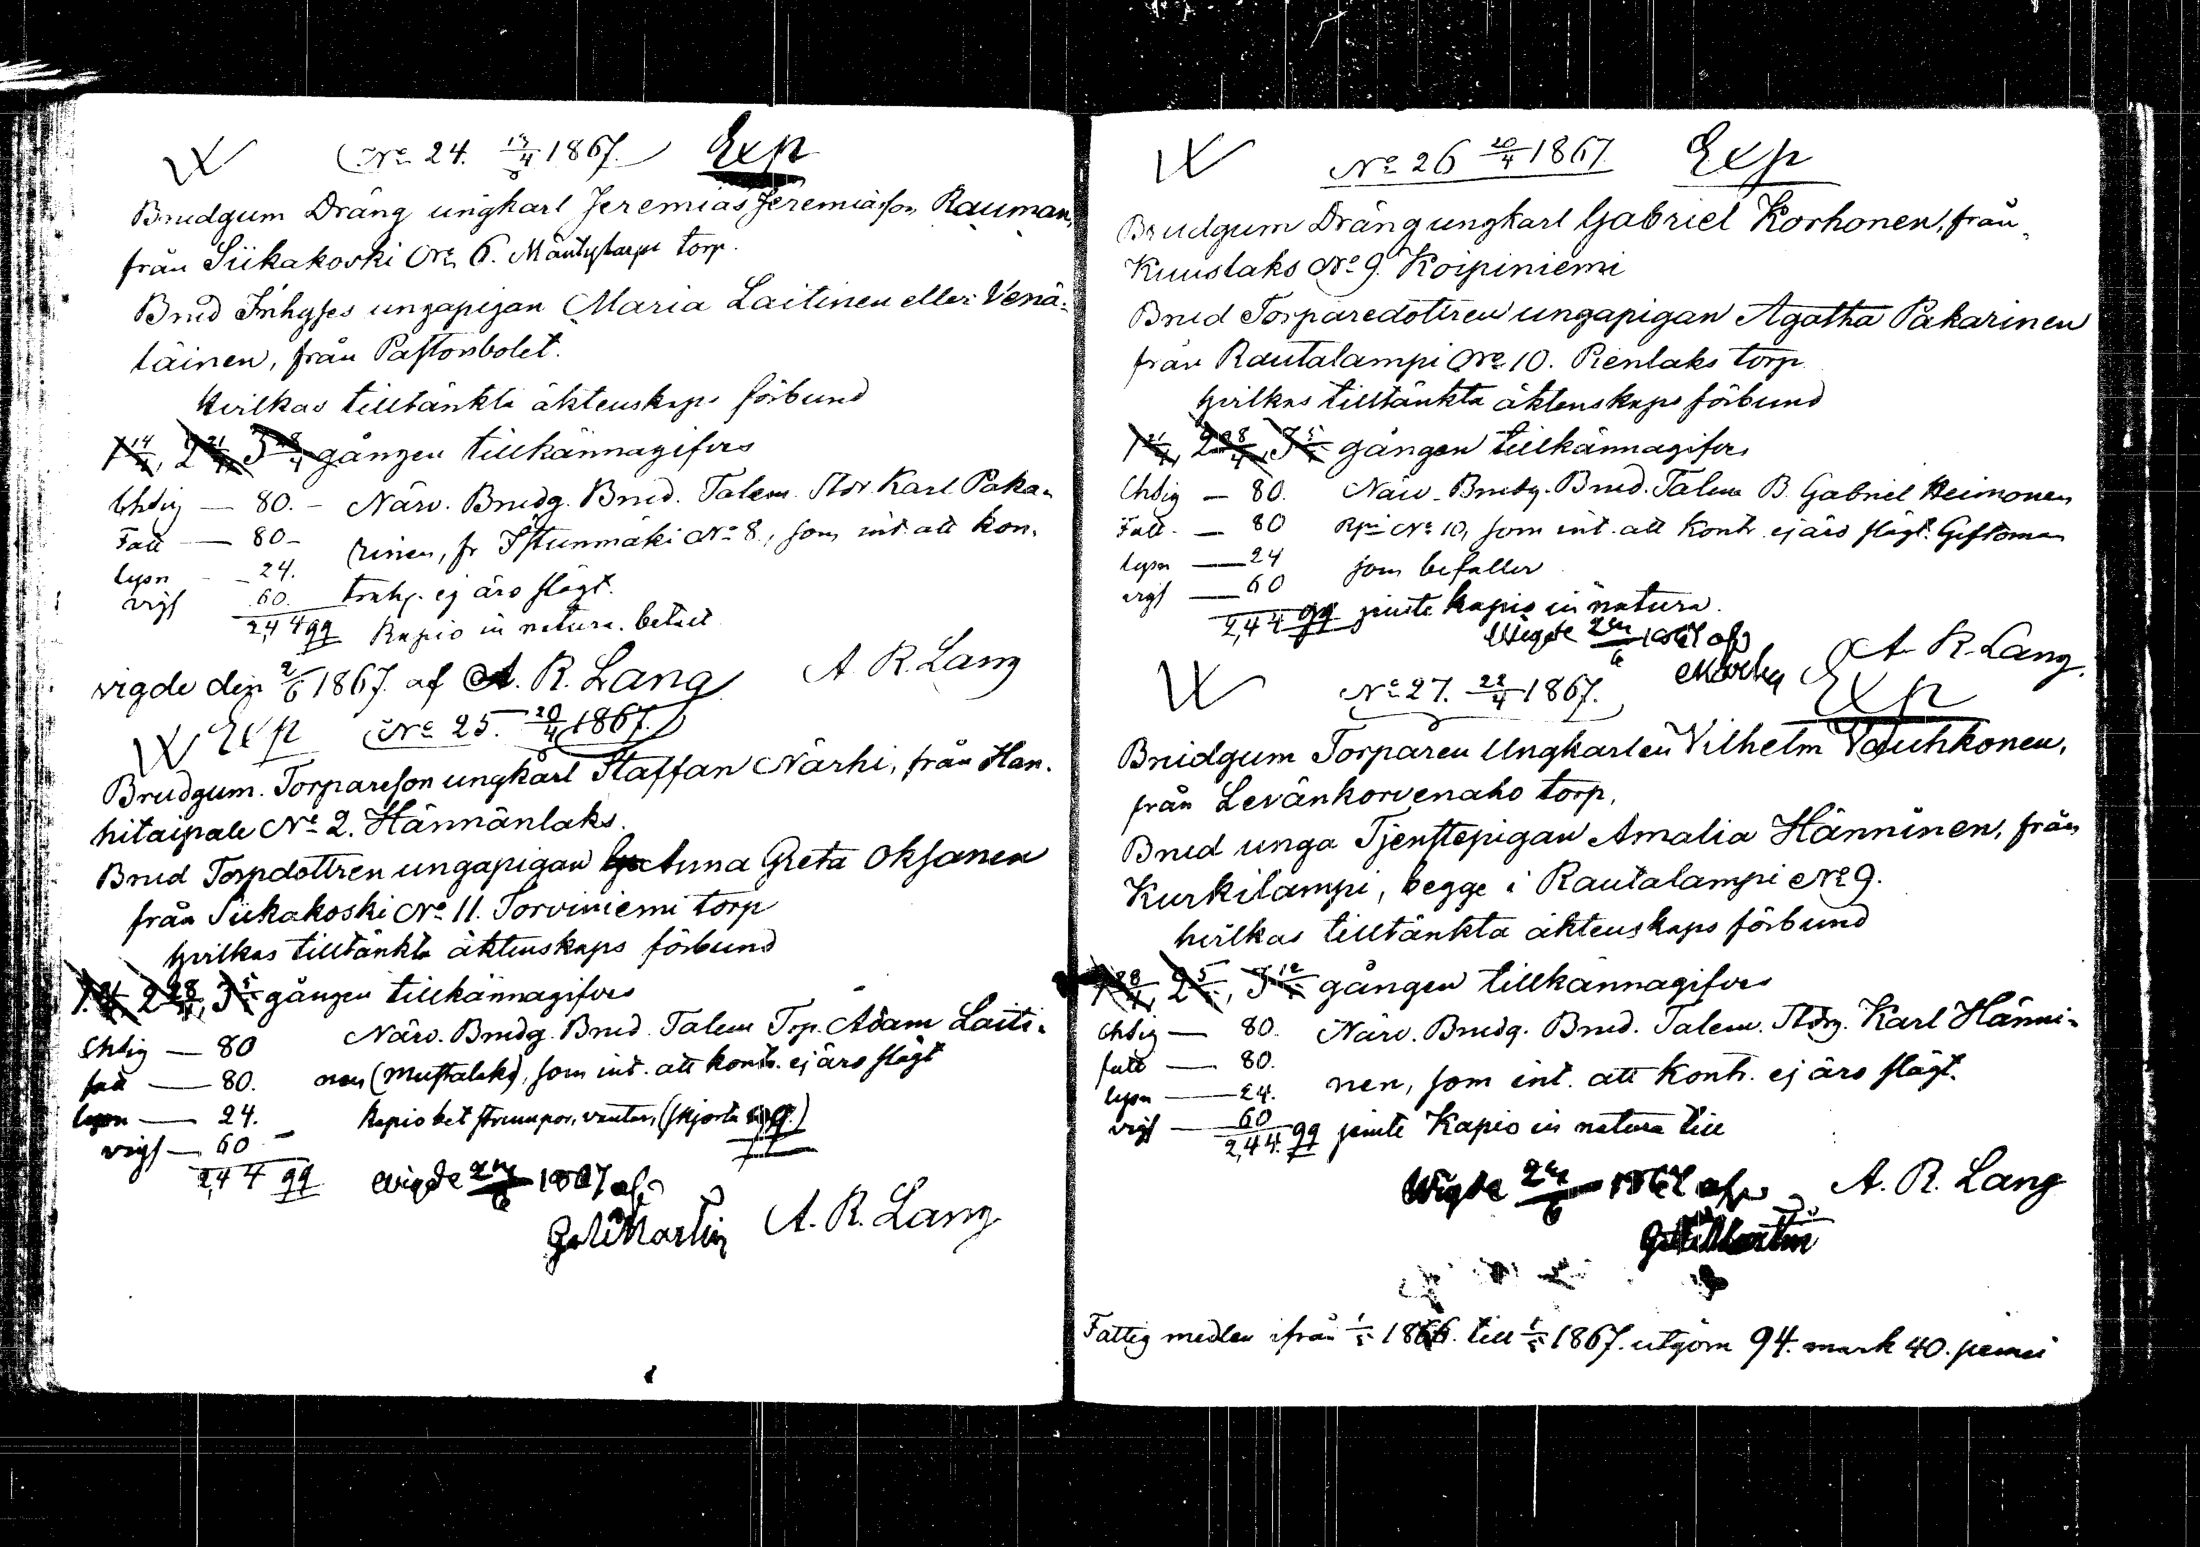 No 24. 13/4 1867. Exp
Brudgum Dräng ungkarl Jeremias Jeremiasson Rauman,
från Siikakoski No 6. Mäntyharju torp.
Brud Inhyses ungapigan Maria Laitinen eller Venä-
läinen, från Pastorsbolet.
hvilkas tilltänkta äktenskaps förbund
1 14/4, 2 21/4, 3 28/4 gången tillkännagifves
Chsig — 80. – Närv. Brudg. Brud. Talem. Stdr. Karl Paka-
Fatt — 80 – rinen, fr Istunmäki No 8., som int. att kon-
lysn – 24. trah. ej äro slägt.
vigs 60. Kapio in natura. betalt
2,44 gg
vigde den 2/6 1867. af A. R. Lang A. R. Lang
Exp No 25. 20/4 1867.
Brudgum. Torpareson ungkarl Staffan Närhi, från Han-
hitaipale No 2. Hännänlaks.
Brud Torpdottren ungapigan Anna Greta Oksanen
från Siikakoski No 11. Torviniemi torp
hvilkas tilltänkta äktenskaps förbund
1. 21/4, 2 28/4, 3 5/5 gången tillkännagifves
Chsig — 80 Närv. Brudg. Brud. Talem Torp. Adam Laiti-
fatt — 80. nen (Mustalaks), som int. att kontr. ej äro slägt
lysn — 24. Kapio bet strumpor, vantar, (skjorta gg.)
vigs — 60 –
2,44 gg vigde 24/6 1867 af
G. W. Martin A. R. Lang
No 26 20/4 1867 Exp
Brudgum Dräng ungkarl Gabriel Korhonen, från
Kuuslaks No 9. Koipiniemi
Brud Torparedottren ungapigan Agatha Pakarinen
från Rautalampi No 10. Pienlaks torp
hvilkas tilltänkta äktenskaps förbund
1 21/4, 2 28/4, 3 5/5 gången tillkännagifves
Chsig — 80. Närv. Brudg. Brud. Talem B. Gabriel Heimonen
Fatt. — 80 Rpi No 10, som int. att kontr. ej äro slägt. Giftoman
lysn — 24 som befaller
vigs — 60
2,44 gg jemte kapio in natura.
Wigde 24/6 1867 af
Martin A. R. Lang.
No 27. 22/4 1867. Exp
Brudgum Torparen Ungkarlen Vilhelm Vauhkonen,
från Levänkorvenaho torp,
Brud unga Tjenstepigan Amalia Hänninen, från
Kurkilampi, begge i Rautalampi No 9.
hvilkas tilltänkta äktenskaps förbund
1 28/4, 2 5/5, 3 12/5 gången tillkännagifves
Chsig — 80. Närv. Brudg. Brud. Talem. Karl Hänni-
fatt — 80. nen, som int. att kontr. ej äro slägt.
lysn — 24.
vigs — 60
2,44. gg jemte Kapio in natura till
Wigde 24/6 1867 af A. R. Lang
G. W. Martin
Fattig medlen ifrån 1/5 1866. till 1/5 1867. utgöra 94. mark 40. penni